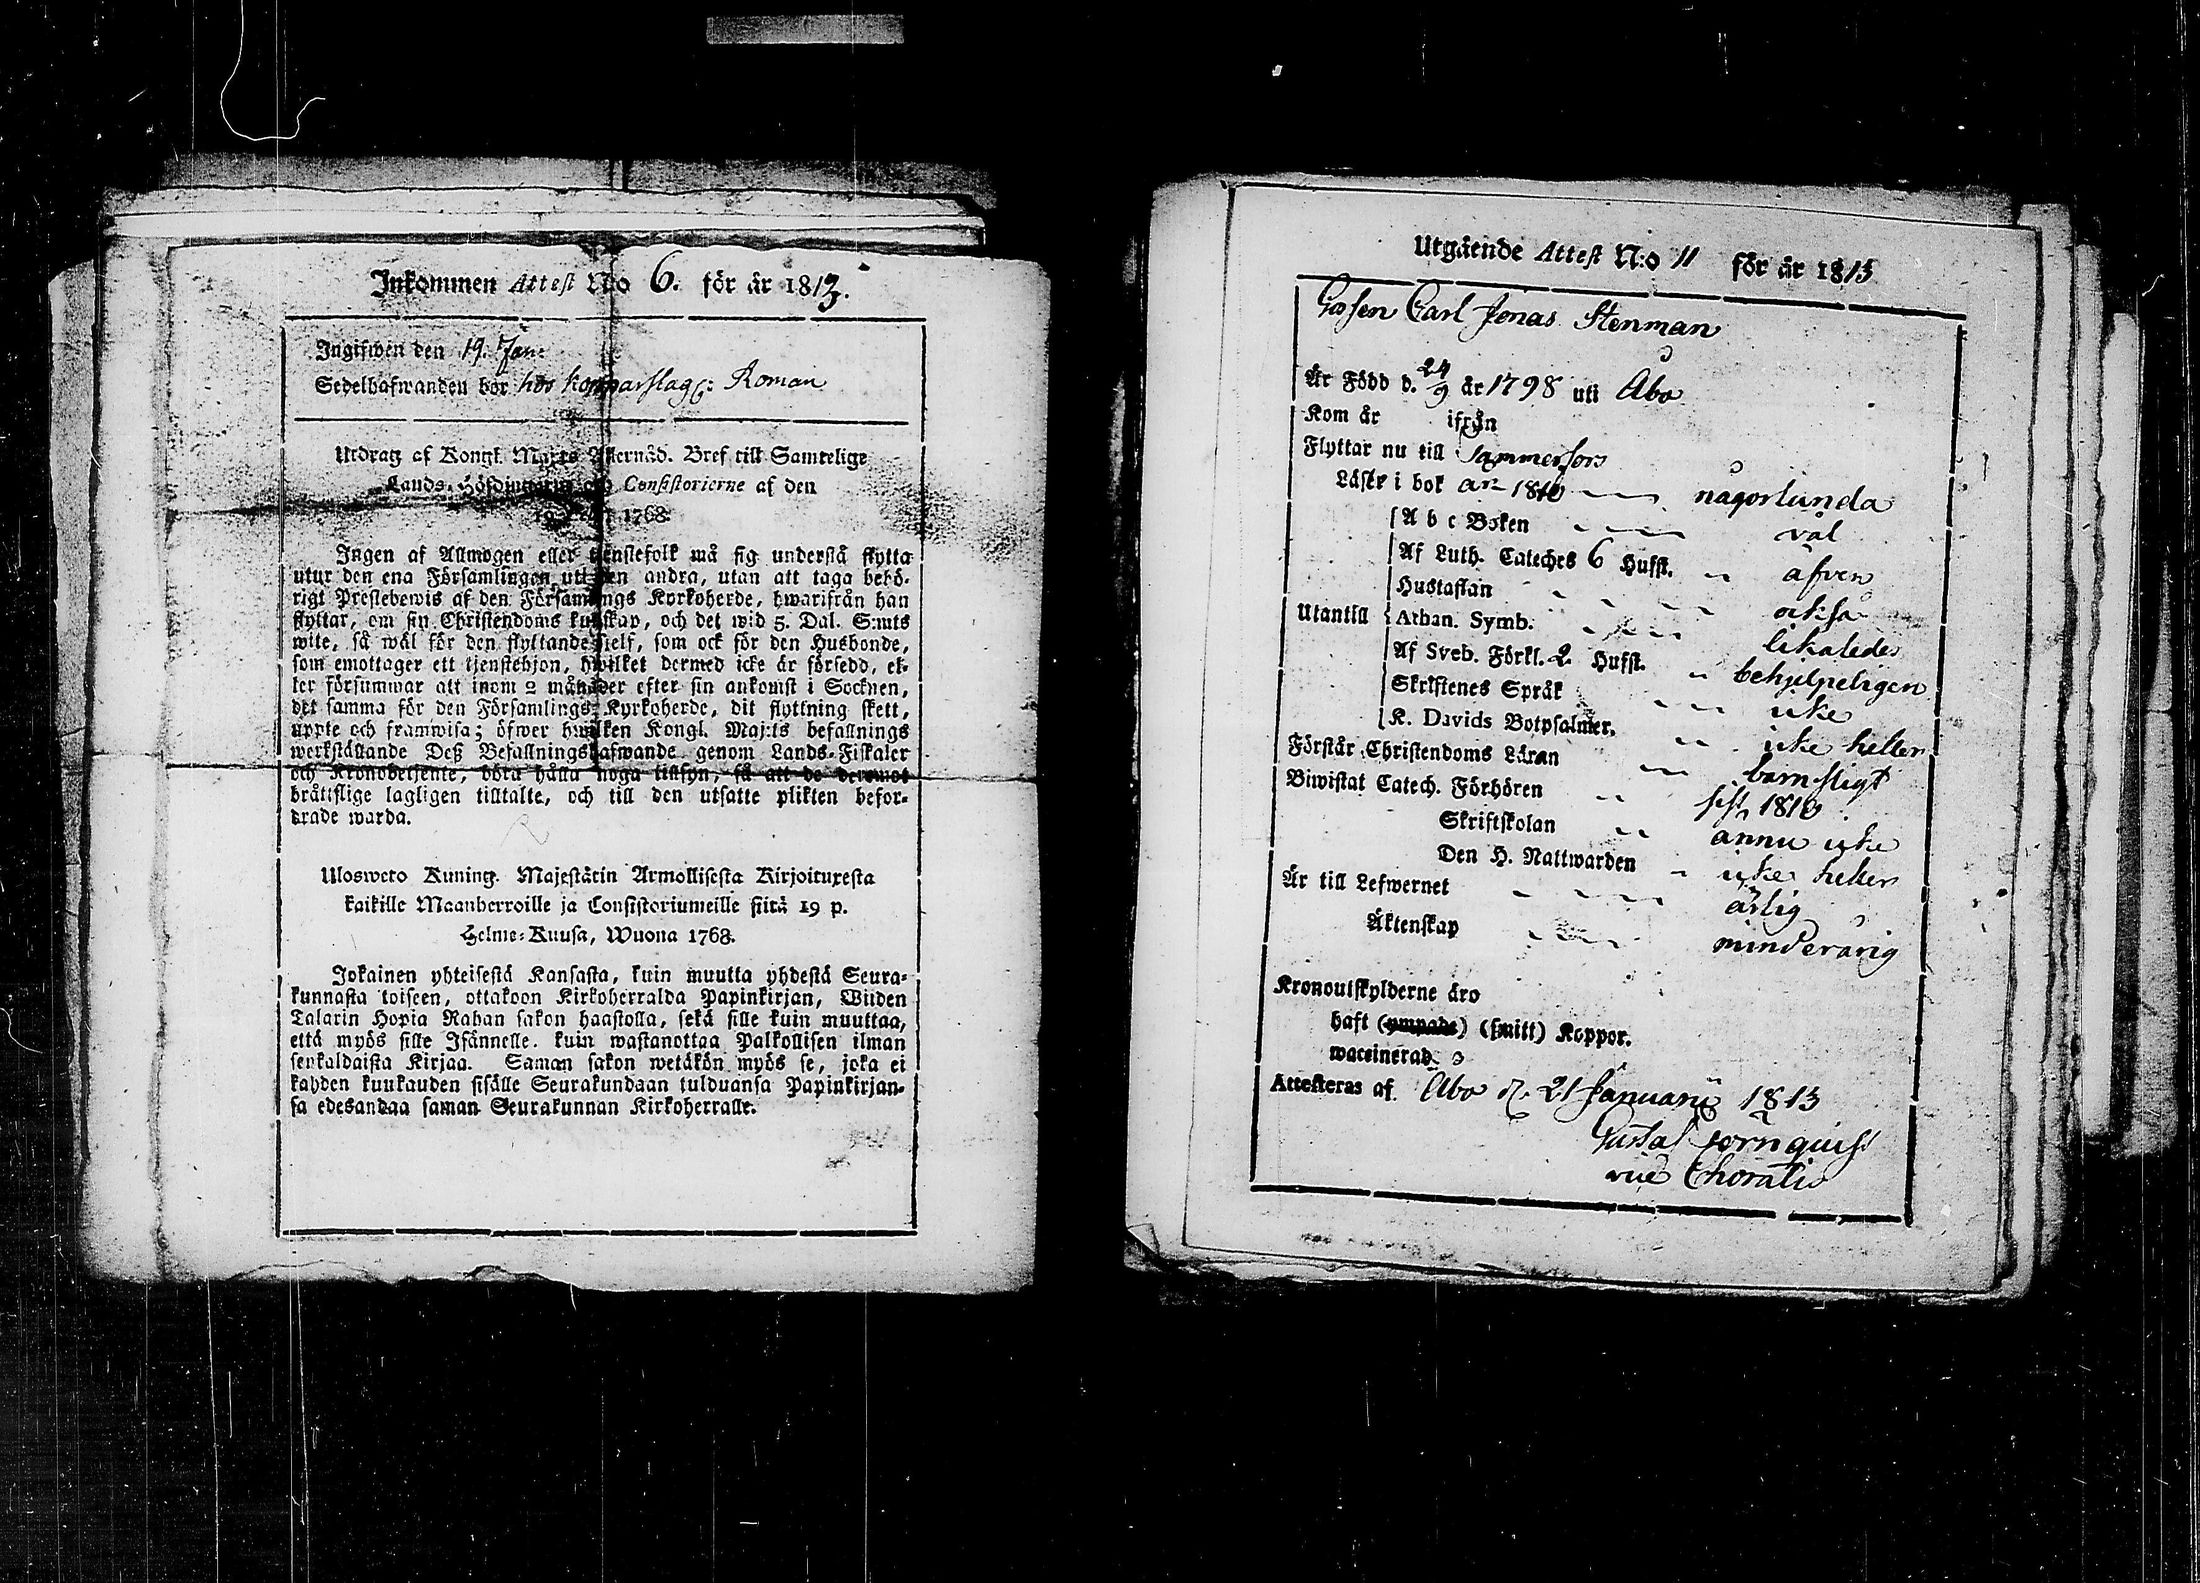 Inkommen Attest N:o 6. för år 1813.
Ingifwen den 19. Jan:
Sedelhafwanden bor hos kopparslag: Roman
Utdrag af Kongl. Maj:ts Bref till Samtelige
Lands-Höfdingarne och Consistorierne af den
1768.
Ingen af Allmogen eller tjenstefolk må sig understå flytta
utur den ena Församlingen uti den andra, utan att taga behö-
rigt Prestebewis af den Församlings Kyrkoherde, hwarifrån han
flyttar, om sin Christendoms kunskap, och det wid 5. Dal. S:mts
wite, så wäl för den flyttande sielf, som ock för den Husbonde,
som emottager ett tjenstehjon, hwilket dermed icke är försedd, el-
ler försummar att inom 2 månader efter sin ankomst i Socknen,
det samma för den Församlings-Kyrkoherde, dit flyttning skett,
uppte och framwisa; öfwer hwilken Kongl. Maj:ts befallnings
werkställande Deß Befallningshafwande genom Lands-Fiskaler
och Kronobetjente, böra hålla noga tillsyn, så att de deremot
bråttslige lagligen tilltalte, och till den utsatte plikten befor-
drade warda.
Ulosweto Kuning. Majestätin Armollisesta Kirjoituxesta
kaikille Maanherroille ja Consistoriumeille siitä 19 p.
Helme-Kuusa, Wuona 1768.
Jokainen yhteisestä Kansasta, kuin muutta yhdestä Seura-
kunnasta toiseen, ottakoon Kirkoherralda Papinkirjan, Wiiden
Talarin Hopia Rahan sakon haastolla, sekä sille kuin muuttaa,
että myös sille Isännelle, kuin wastanottaa Palkollisen ilman
senkaldaista Kirjaa. Saman sakon wetäkön myös se, joka ei
kahden kuukauden sisälle Seurakundaan tulduansa Papinkirjan-
sa edesandaa saman Seurakunnan Kirkoherralle.
Utgående Attest N:o 11 för år 1813
Gossen Carl Jonas Stenman
Är Född d. 24/9 år 1798 uti Åbo
Kom år ifrån
Flyttar nu till Tammerfors
Läste i bok år 1810 någorlunda
Utantill
A b c Boken väl
Af Luth. Cateches 6 Hufst. äfven
Hustaflan också
Athan. Symb. likaledes
Af Sveb. Förkl. 2 Hufst. behjelpeligen
Skriftenes Språk icke
K. Davids Botpsalmer. icke heller
Förstår Christendoms Läran barnsligt
Biwistat Catech. Förhören sist 1810
Skriftskolan ännu icke
Den H. Nattwarden icke heller
Är till Lefwernet ärlig
Äktenskap minderårig
Kronoutskylderne äro
haft (ympade) (smitt) Koppor.
waccinerad
Attesteras af Åbo d. 21 Januarii 1813
Gustaf Törnquist
vice Choralis